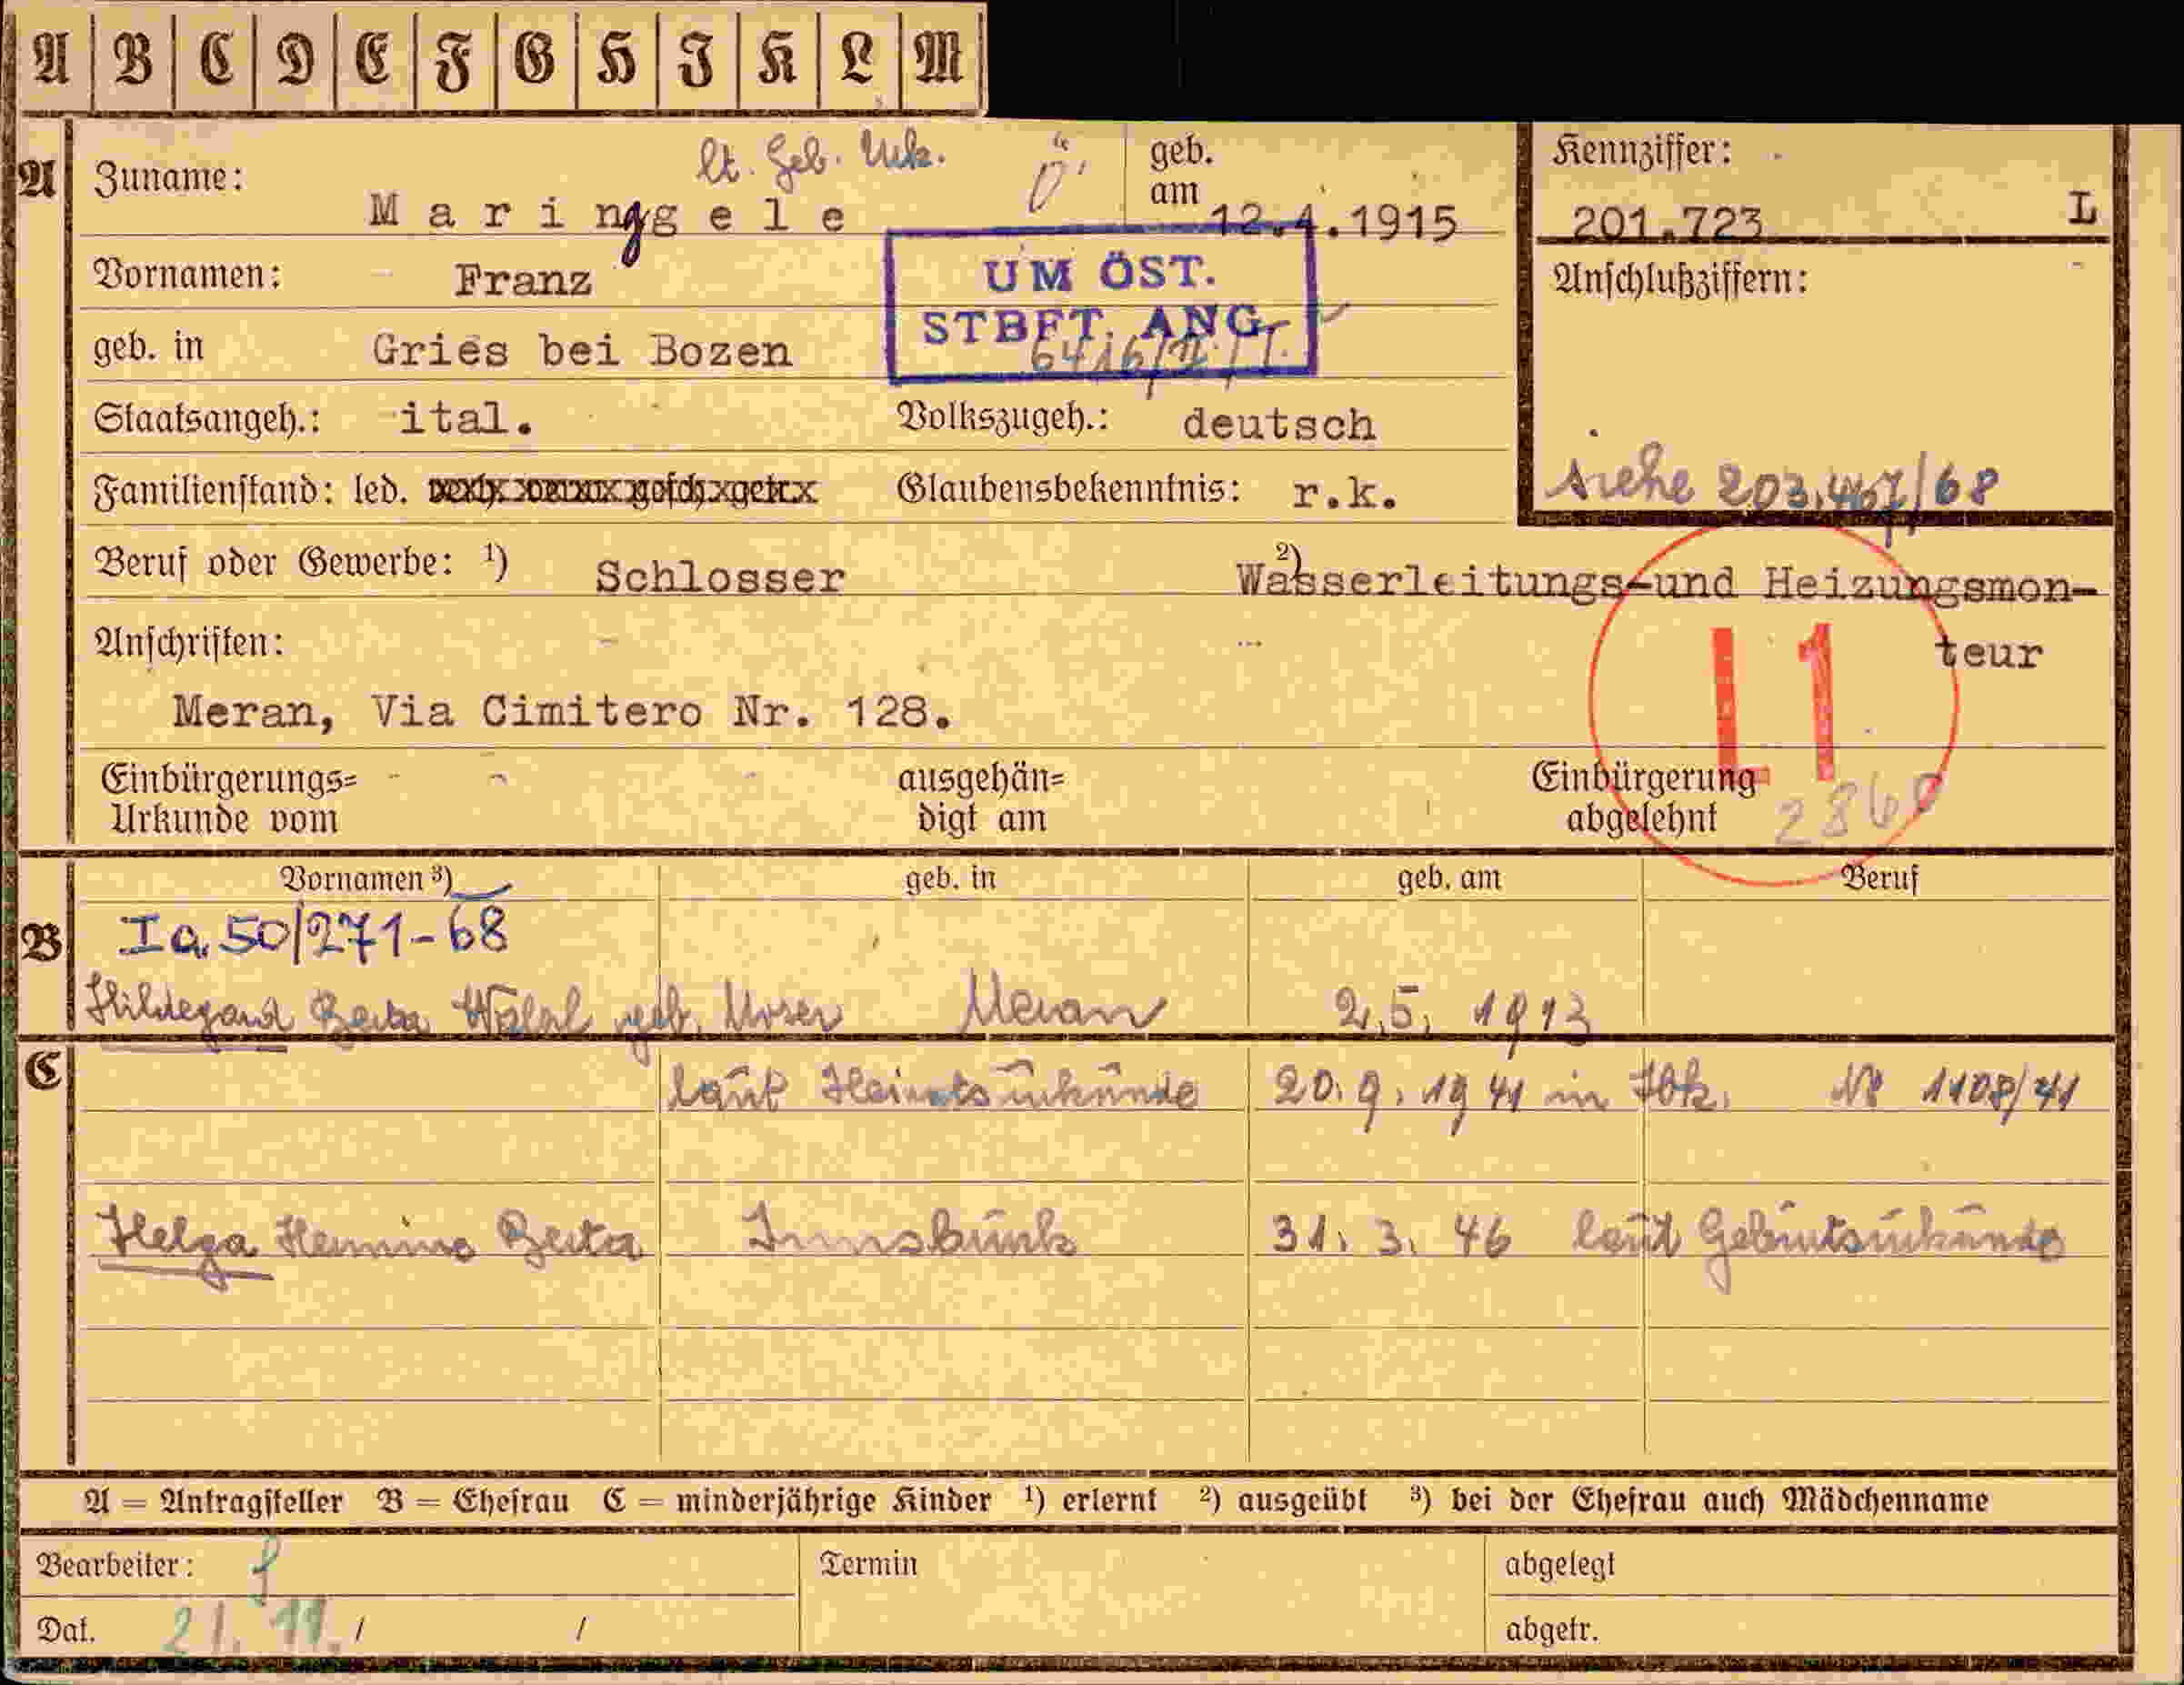 A B C D E F G H I K L M
lt. Geb. Urk.
A Zuname: Maringgele Ö.
geb. am 12.4.1915
Kennziffer: 201.723 L
Vornamen: Franz
UM ÖST.
STBFT. ANG.
Anschlußziffern:
geb. in Gries bei Bozen
Staatsangeh.: ital. Volkszugeh.: deutsch
Familienstand: led. Glaubensbekenntnis: r.k.
siehe 203.467/68
Beruf oder Gewerbe: ¹) Schlosser ²) Wasserleitungs-und Heizungsmon-
teur
Anschriften:
L1
Meran, Via Cimitero Nr. 128.
Einbürgerungs=
Urkunde vom
ausgehän=
digt am
Einbürgerung
abgelehnt
2860
Vornamen ³) geb. in geb. am Beruf
B Ia. 50/271-68
Hildegard Berta geb. Moser Meran 2.5. 1913
C laut Heiratsurkunde 20.9.1941 in Ibk. No 1108/41
Helga Hermine Berta Innsbruck 31. 3. 46 laut Geburtsurkunde
A = Antragsteller B = Ehefrau C = minderjährige Kinder ¹) erlernt ²) ausgeübt ³) bei der Ehefrau auch Mädchenname
Bearbeiter: Termin abgelegt
Dat. 21. 11. / / abgetr.